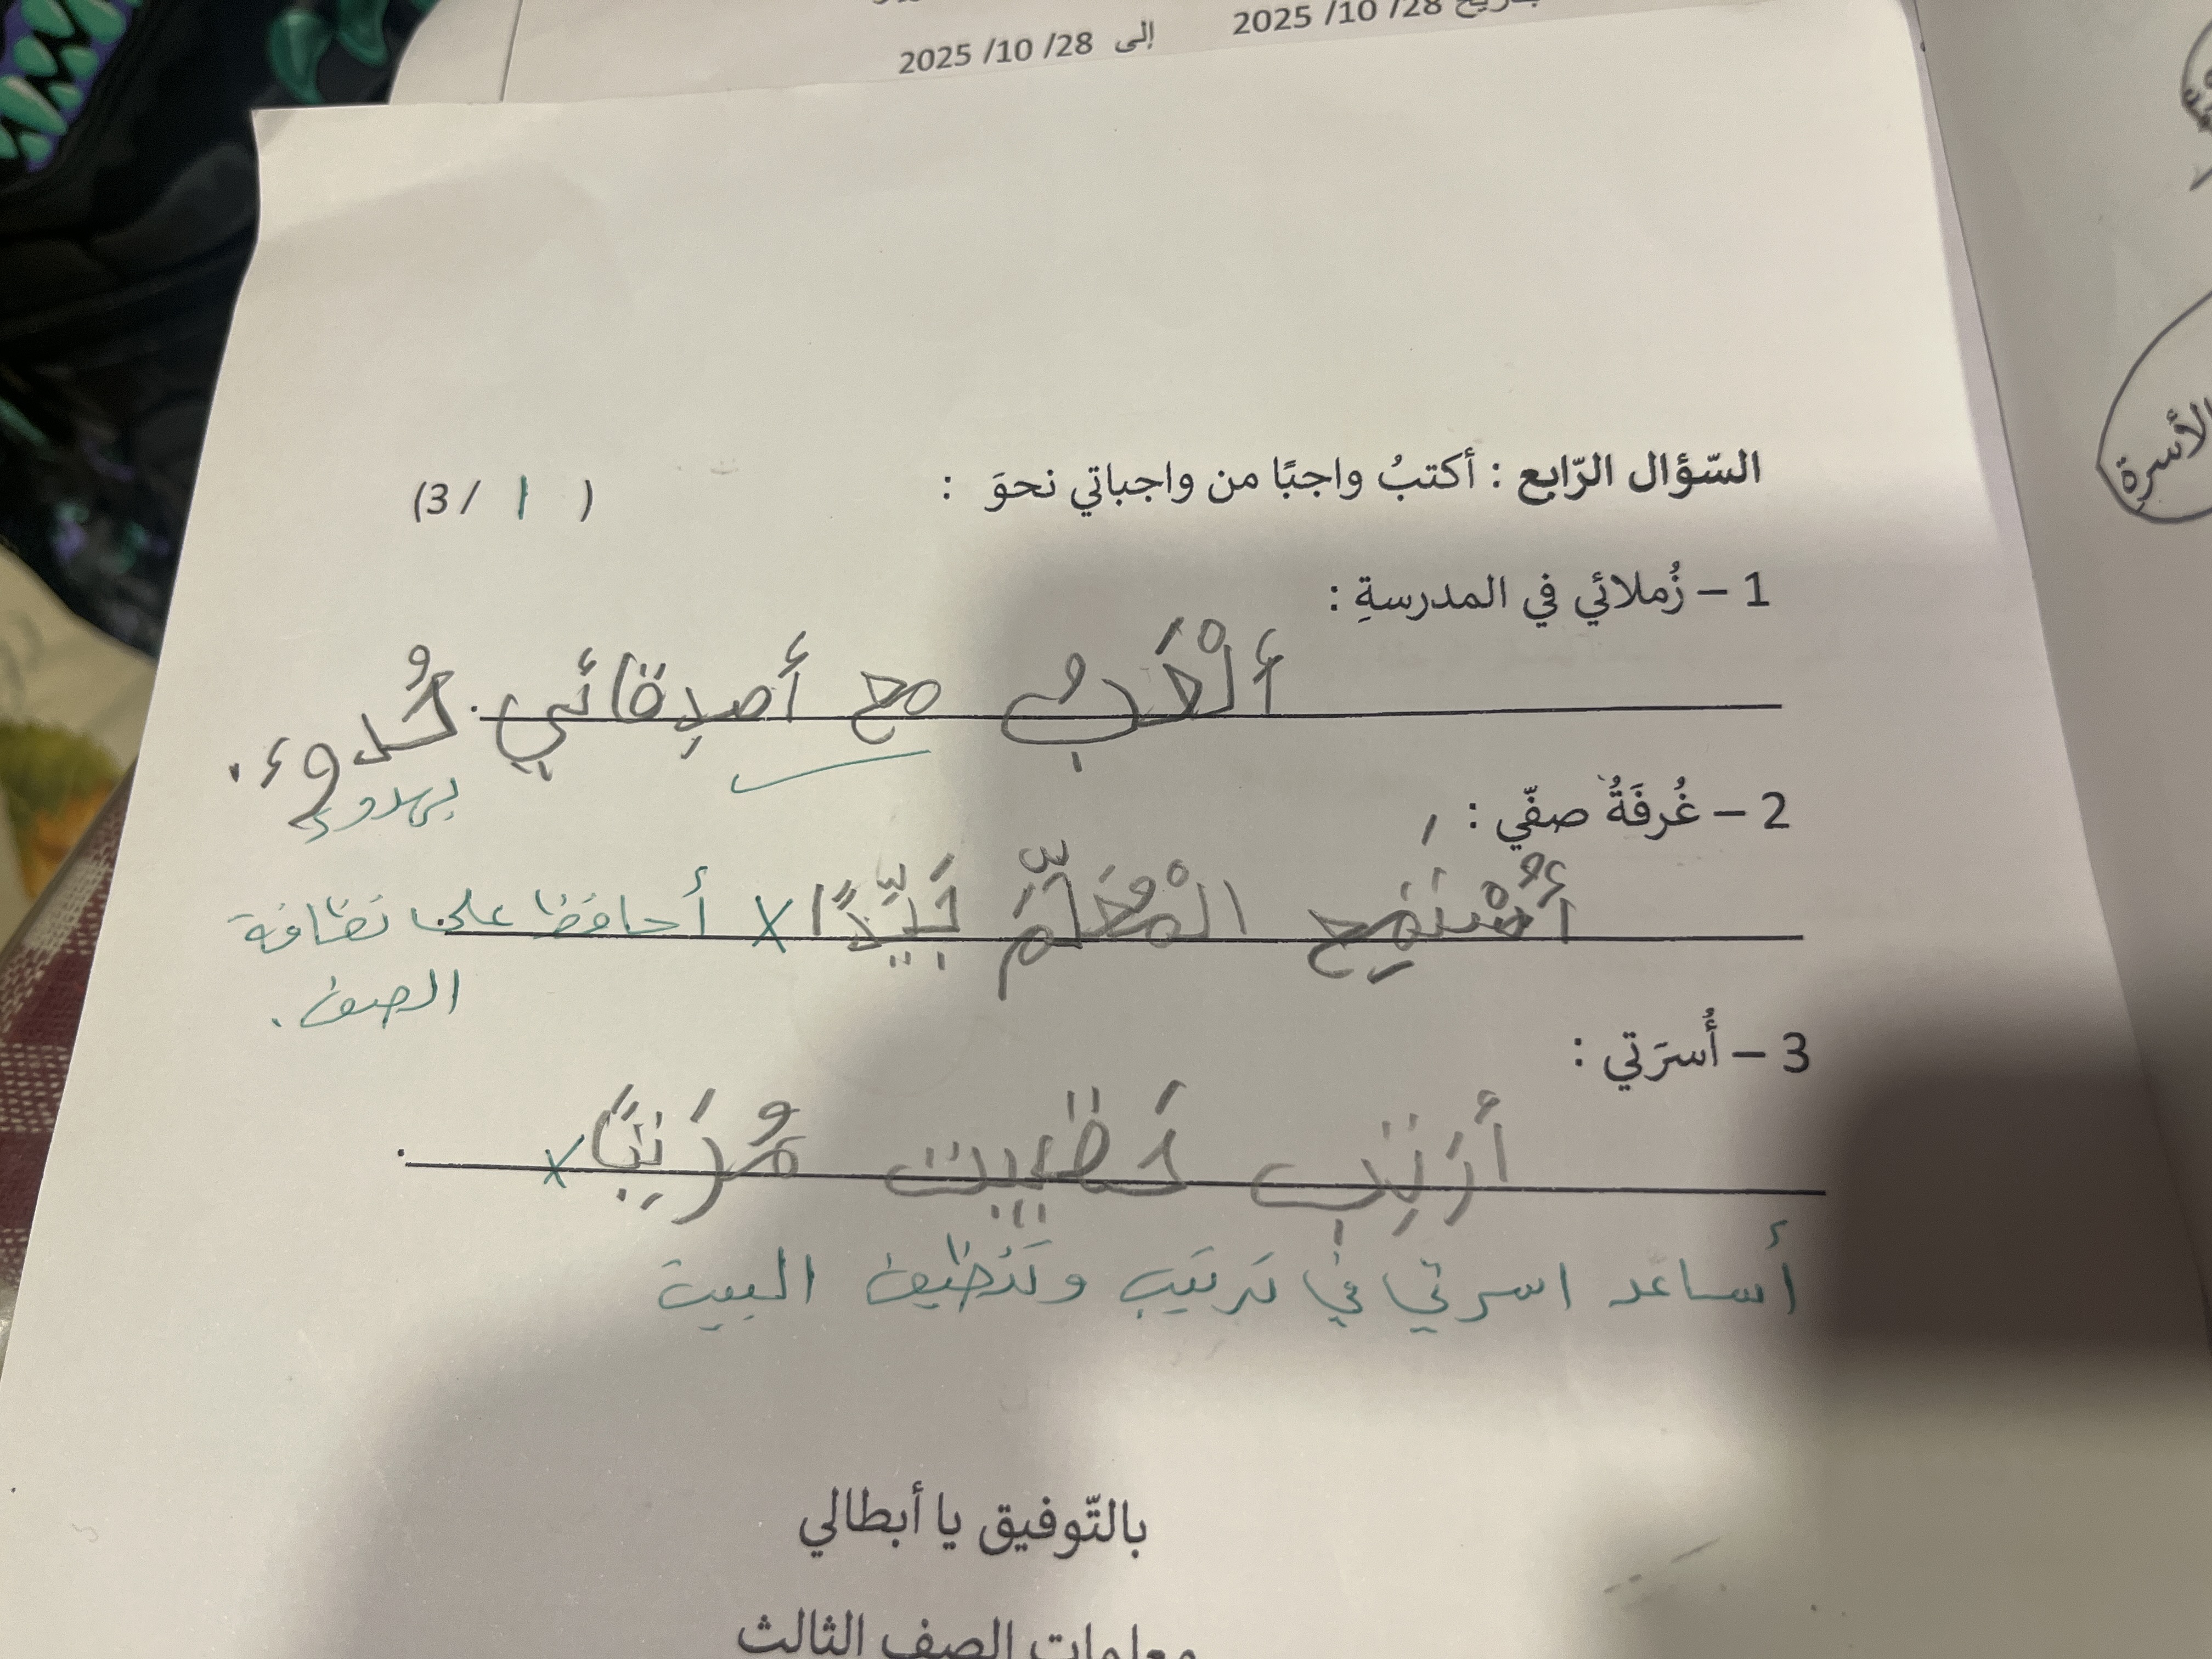 بتاريخ 28/ 10/ 2025 إلى 28/ 10/ 2025
السّؤال الرّابع : أكتبُ واجبًا من واجباتي نحوَ : ( 1 /3)
1 – زُملائي في المدرسةِ :
ألْعَبُ مع أصدِقائي.
بهدوء
2 – غُرفَةُ صفّي :
أسْتَمِع الْمُعَلِّم جَيِّدًا X أحافظ على نظافة
الصف.
3 – أُسرَتي :
أرَتِب مُرَتبًا X .
أساعد اسرتي في ترتيب وتنظيف البيت
بالتّوفيق يا أبطالي
معلمات الصف الثالث
الأسرةِ